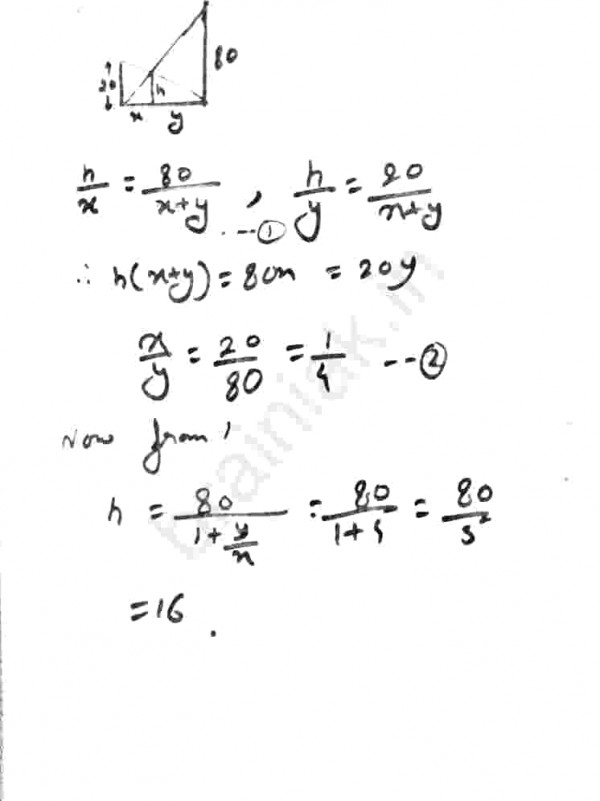 80
20 h
x y
h/x = 80/(x+y) , h/y = 20/(x+y)
--- ①
∴ h(x+y) = 80x = 20y
x/y = 20/80 = 1/4 --- ②
Now from 1
h = 80/(1+y/x) = 80/(1+4) = 80/5
= 16 .
brainiak.in